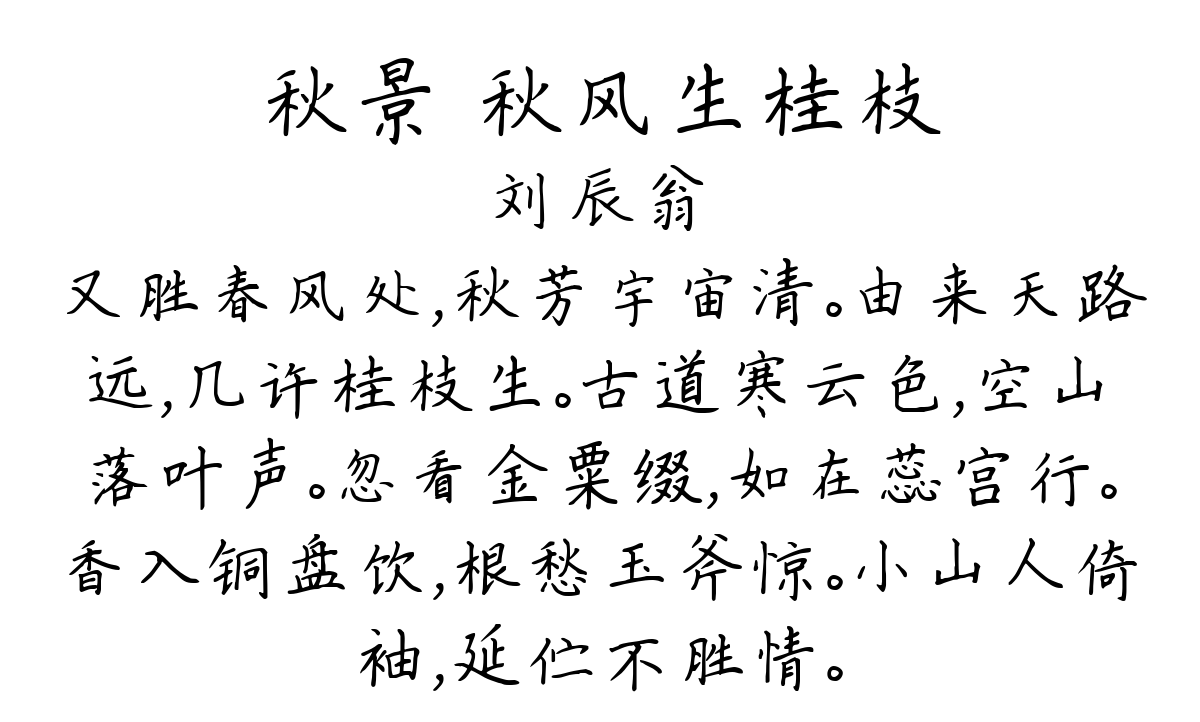 秋景 秋风生桂枝
刘辰翁
又胜春风处,秋芳宇宙清。由来天路
远,几许桂枝生。古道寒云色,空山
落叶声。忽看金粟缀,如在蕊宫行。
香入铜盘饮,根愁玉斧惊。小山人倚
袖,延伫不胜情。